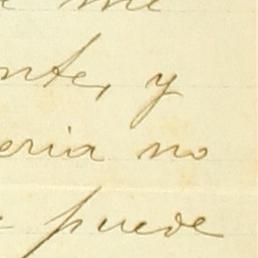 me
nte, y
eria no
puede